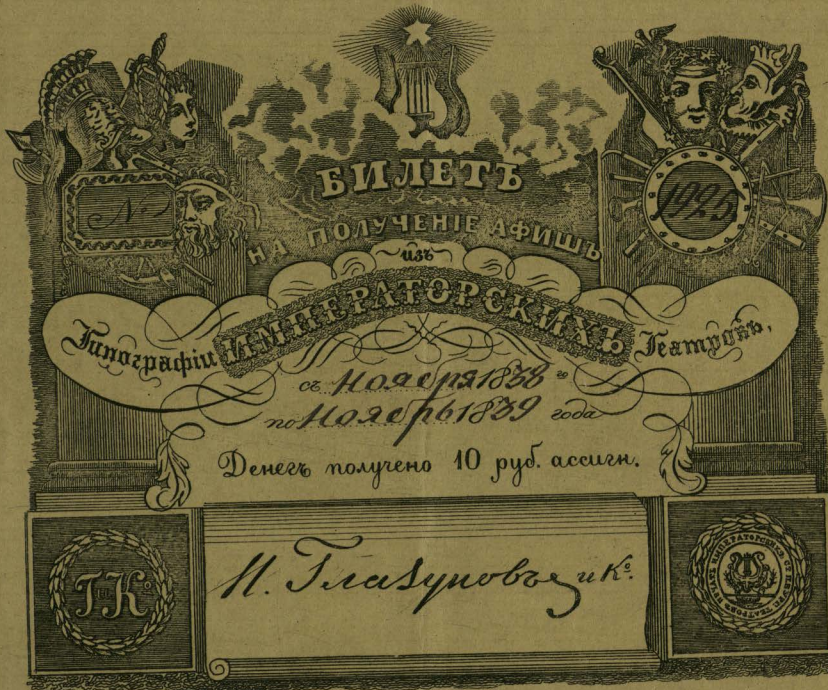 БИЛЕТЪ
НА ПОЛУЧЕНІЕ АФИШЪ
изъ
Типографіи ИМПЕРАТОРСКИХЪ Театровъ,
№. 1925
съ Ноября 1838 го
по Ноябрь 1839 года
Денегъ получено 10 руб. ассигн.
И. Глазуновъ и Ко.
Г и Ко